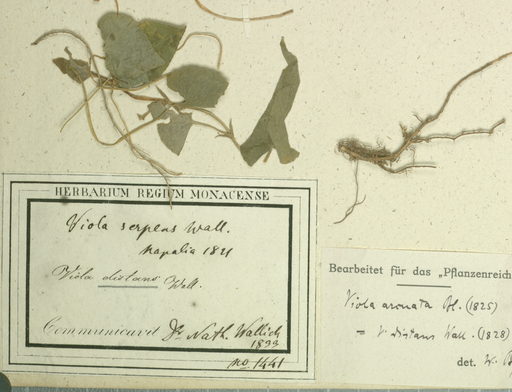 HERBARIUM REGIUM MONACENSE
Viola serpens Wall.
Napalia 1821
Viola distans Wall.
Communicavit Dr. Nath. Wallich
1833
no 1441
Bearbeitet für das „Pflanzenreich
Viola arcuata Bl. (1825)
= V. distans Wall. (1828)
det. W.